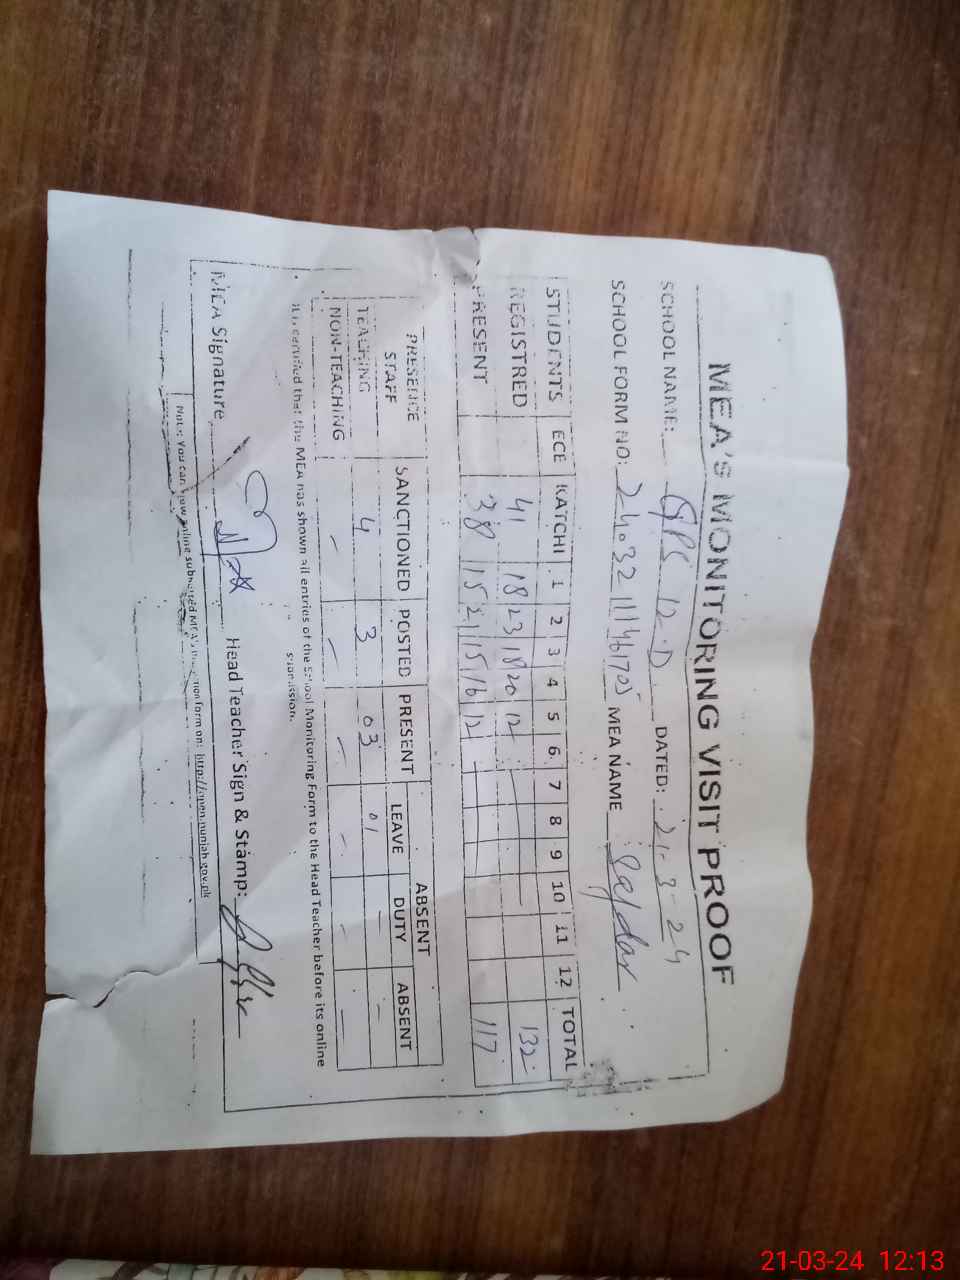 MEA'S MONITORING VISIT PROOF
SCHOOL NAME: GPS 12.D DATED: 21-3-24
SCHOOL FORM NO: MEA NAME Safdar
STUDENTS ECE KATCHI 1 2 3 4 5 6 7 8 9 10 11 12 TOTAL
REGISTRED 41 18 23 18 20 12 132
PRESENT 38 15 21 15 16 12 117
PRESENCE STAFF SANCTIONED POSTED PRESENT ABSENT
LEAVE DUTY ABSENT
TEACHING 4 3 03 01 - -
NON-TEACHING - - - - - -
It is certified that the MEA has shown all entries of the School Monitoring Form to the Head Teacher before its online
submission.
MEA Signature Head Teacher Sign & Stamp:
Note: You can view online submitted MEA's form on: http://open.punjab.gov.pk
21-03-24 12:13